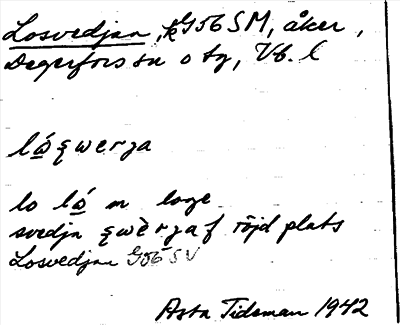 Losvedjan, k G56 SM, åker,
Degerfors sn o tg, Vb. l
lǻ̱ʂwerja
lo lǻ̱ m loge
svedja ʂwè̱rja f röjd plats
Losvedjan G56 SV
Asta Tidsman 1942